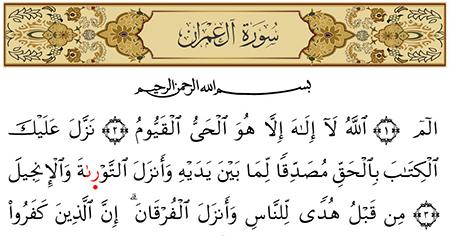 سُورَةُ آلِ عِمْرَان
بسم الله الرحمن الرحيم
الٓمٓ ﴿١﴾ اللَّهُ لَآ إِلَٰهَ إِلَّا هُوَ الْحَىُّ الْقَيُّومُ ﴿٢﴾ نَزَّلَ عَلَيْكَ
الْكِتَٰبَ بِالْحَقِّ مُصَدِّقًا لِّمَا بَيْنَ يَدَيْهِ وَأَنزَلَ التَّوْرَىٰةَ وَالْإِنجِيلَ
﴿٣﴾ مِن قَبْلُ هُدًى لِّلنَّاسِ وَأَنزَلَ الْفُرْقَانَ ۗ إِنَّ الَّذِينَ كَفَرُوا۟